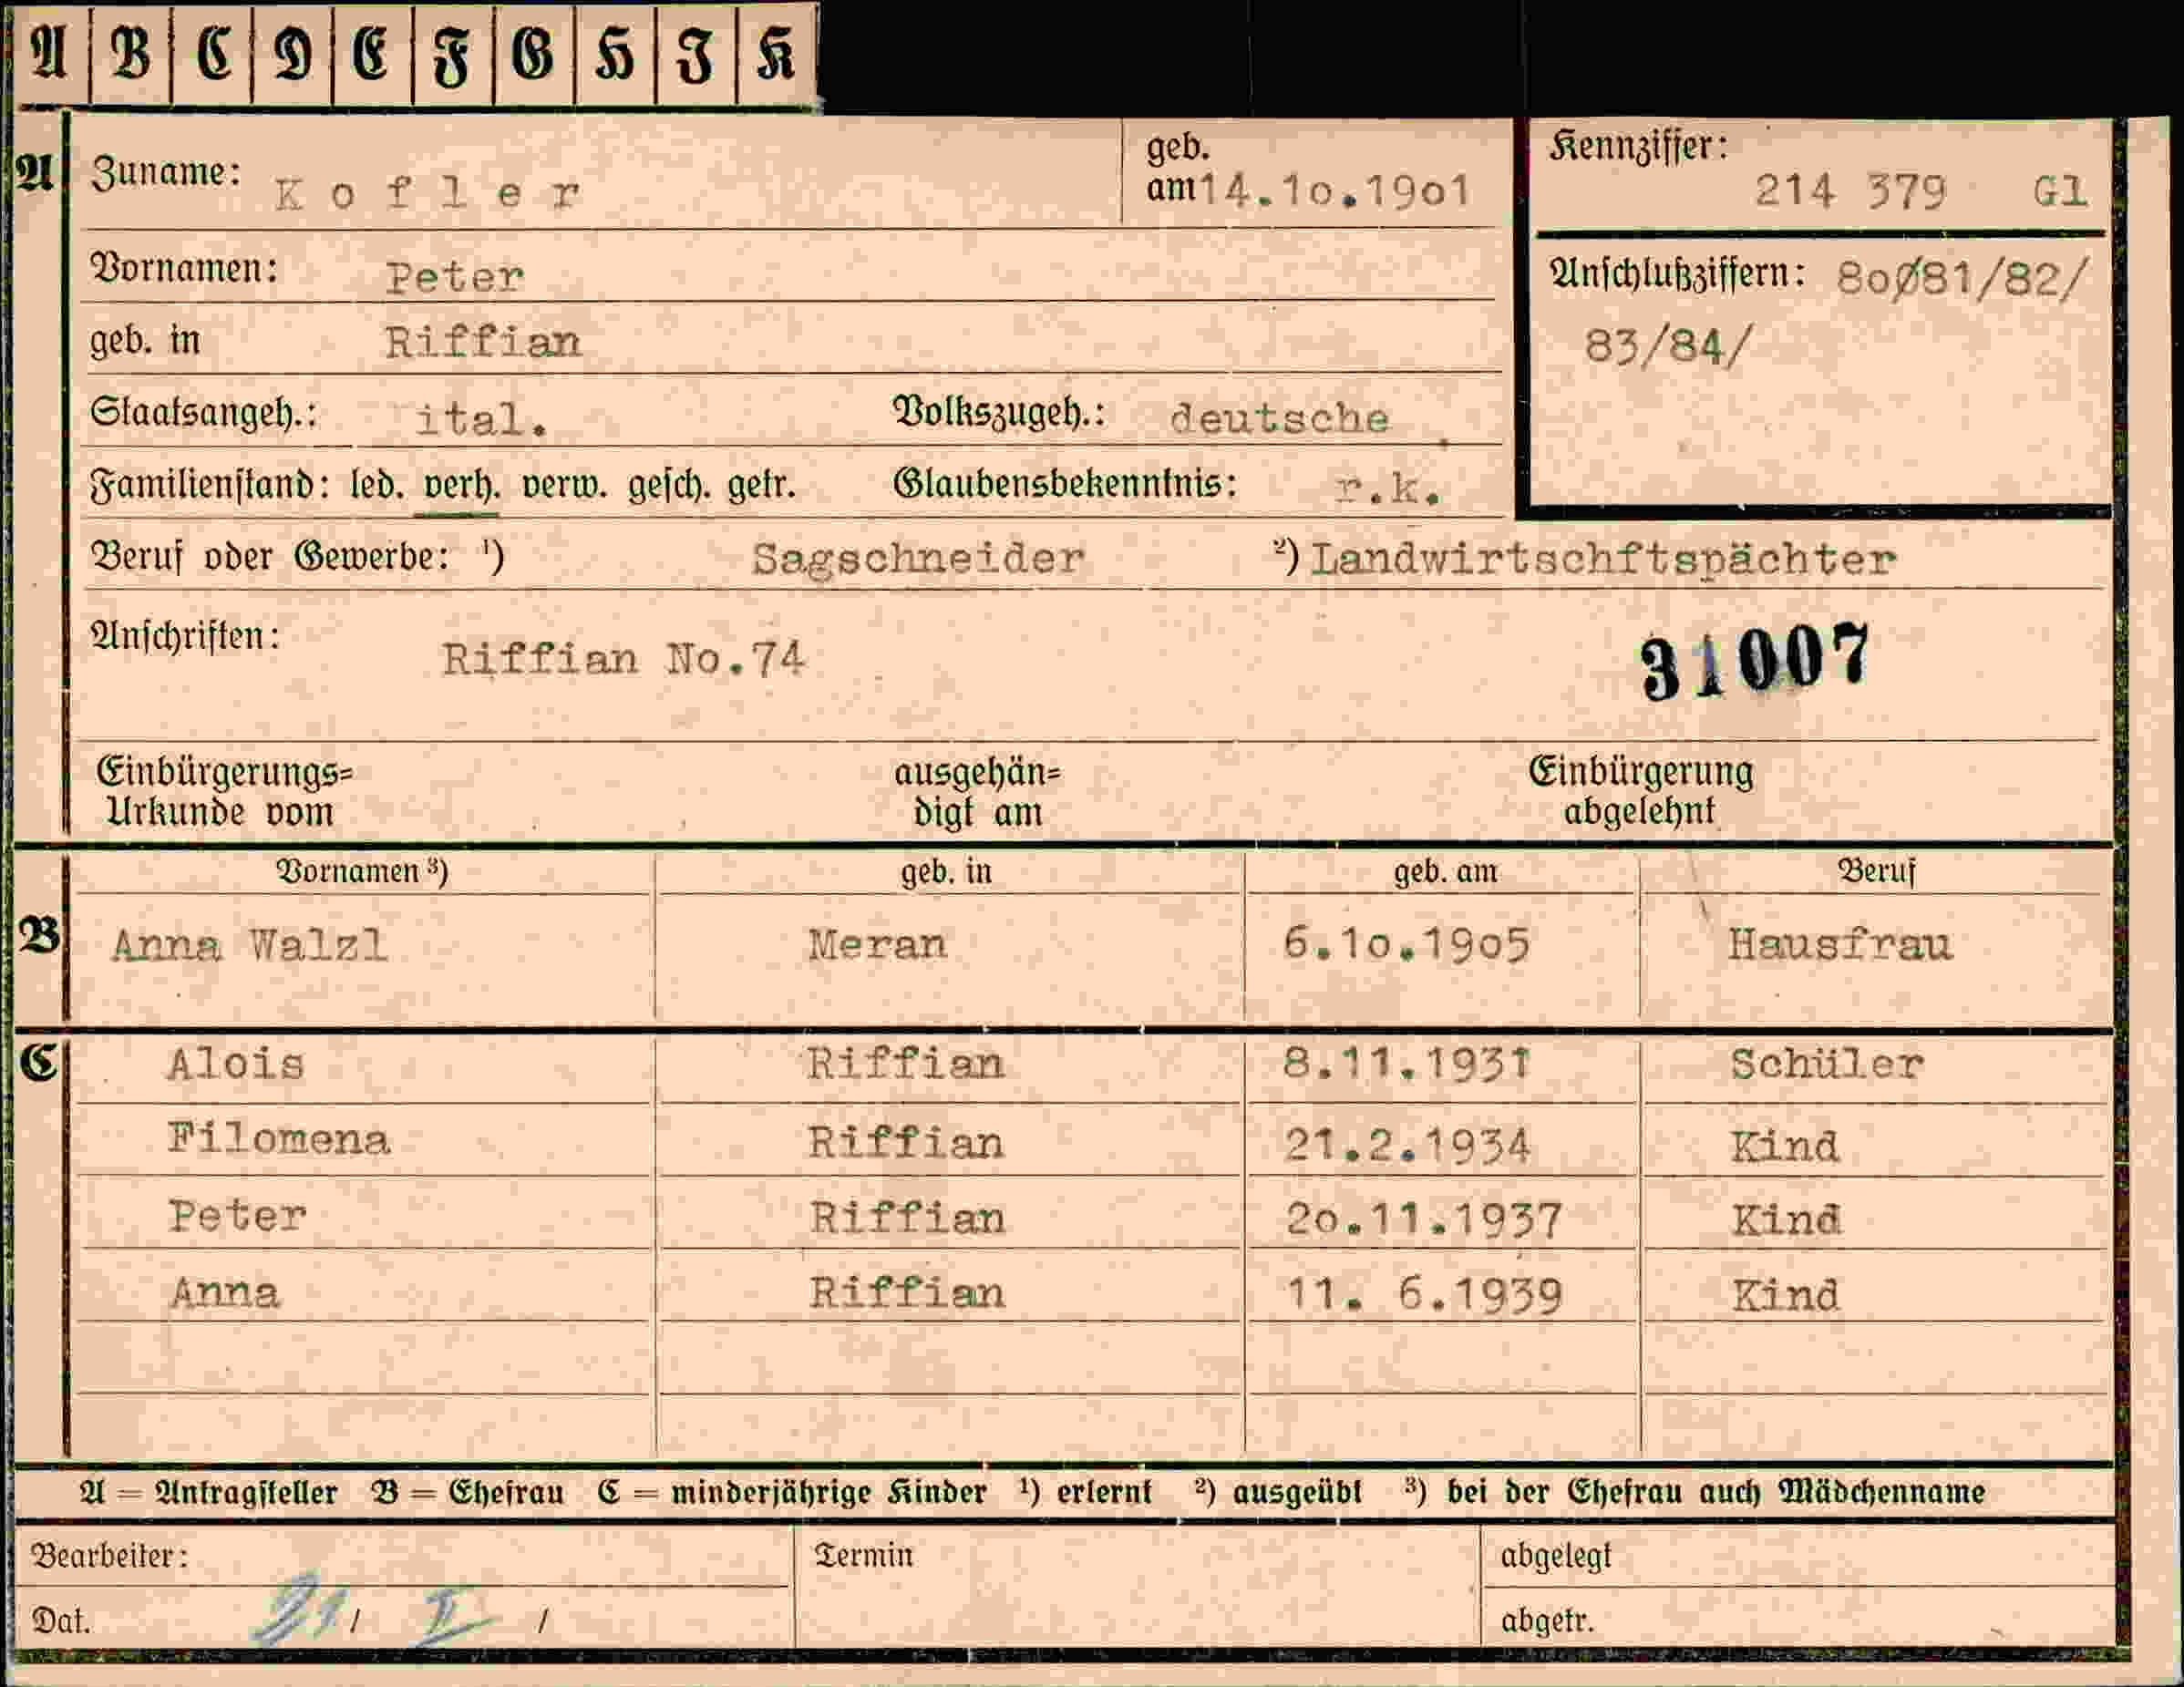 A B C D E F G H I K
A Zuname: Kofler geb. am 14.10.1901 Kennziffer: 214 379 Gl
Vornamen: Peter Anschlußziffern: 80/81/82/
83/84/
geb. in Riffian
Staatsangeh.: ital. Volkszugeh.: deutsche
Familienstand: led. verh. verw. gesch. getr. Glaubensbekenntnis: r.k.
Beruf oder Gewerbe: ¹) Sagschneider ²) Landwirtschftspächter
Anschriften: Riffian No.74 31007
Einbürgerungs= ausgehän= Einbürgerung
Urkunde vom digt am abgelehnt
Vornamen ³) geb. in geb. am Beruf
B Anna Walzl Meran 6.10.1905 Hausfrau
C Alois Riffian 8.11.1931 Schüler
Filomena Riffian 21.2.1934 Kind
Peter Riffian 20.11.1937 Kind
Anna Riffian 11. 6.1939 Kind
A = Antragsteller B = Ehefrau C = minderjährige Kinder ¹) erlernt ²) ausgeübt ³) bei der Ehefrau auch Mädchenname
Bearbeiter: Termin abgelegt
Dat. / / abgetr.